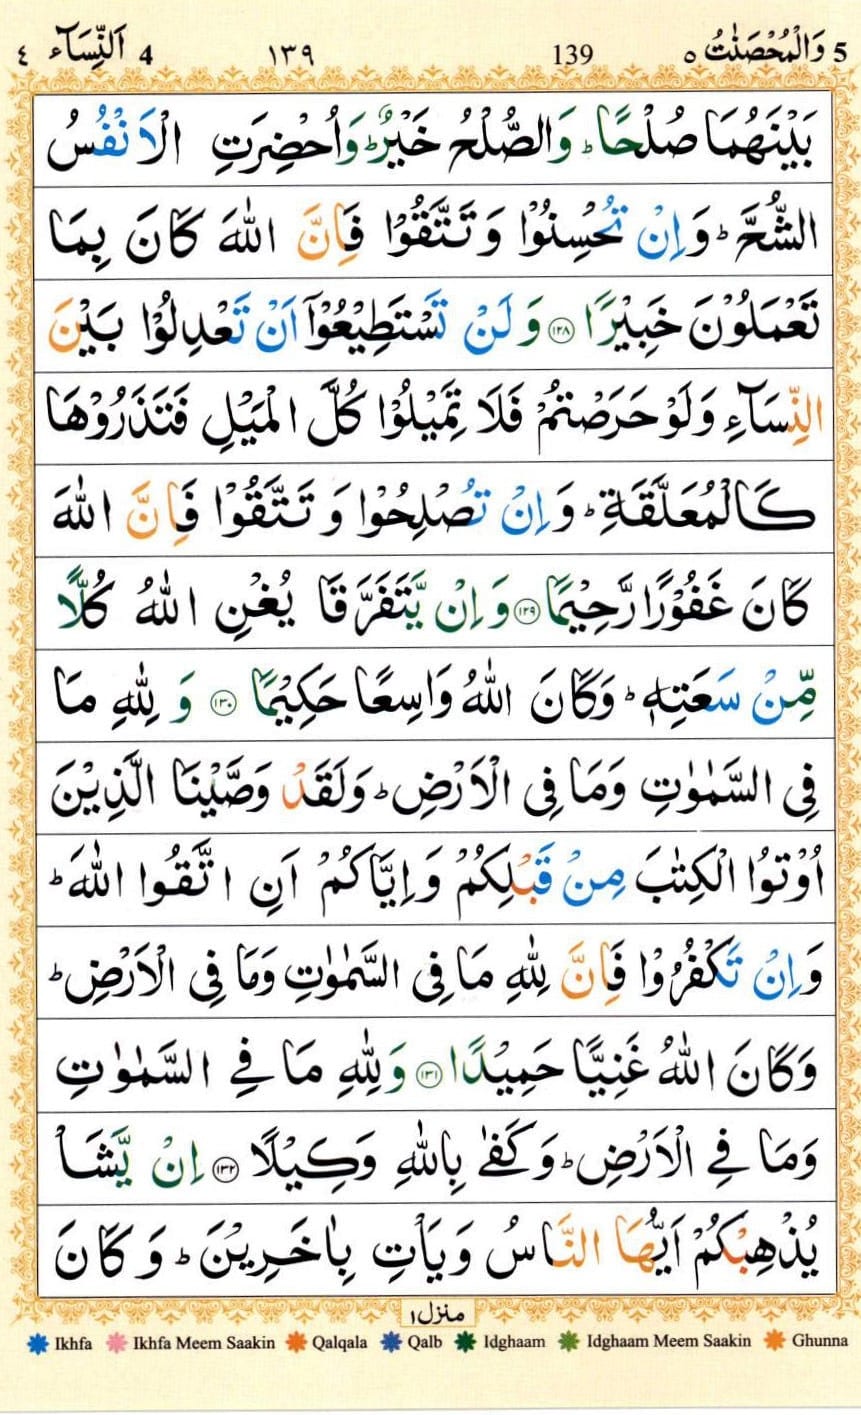 5 وَالْمُحْصَنٰتُ ٥ 139 ١٣٩ 4 اَلنِّسَآء ٤
بَيْنَهُمَا صُلْحًا ؕ وَالصُّلْحُ خَيْرٌ ؕ وَاُحْضِرَتِ الْاَنْفُسُ
الشُّحَّ ؕ وَاِنْ تُحْسِنُوْا وَتَتَّقُوْا فَاِنَّ اللّٰهَ كَانَ بِمَا
تَعْمَلُوْنَ خَبِيْرًا ﴿١٢٨﴾ وَلَنْ تَسْتَطِيْعُوْٓا اَنْ تَعْدِلُوْا بَيْنَ
النِّسَآءِ وَلَوْ حَرَصْتُمْ فَلَا تَمِيْلُوْا كُلَّ الْمَيْلِ فَتَذَرُوْهَا
كَالْمُعَلَّقَةِ ؕ وَاِنْ تُصْلِحُوْا وَتَتَّقُوْا فَاِنَّ اللّٰهَ
كَانَ غَفُوْرًا رَّحِيْمًا ﴿١٢٩﴾ وَاِنْ يَّتَفَرَّقَا يُغْنِ اللّٰهُ كُلًّا
مِّنْ سَعَتِهٖ ؕ وَكَانَ اللّٰهُ وَاسِعًا حَكِيْمًا ﴿١٣٠﴾ وَلِلّٰهِ مَا
فِى السَّمٰوٰتِ وَمَا فِى الْاَرْضِ ؕ وَلَقَدْ وَصَّيْنَا الَّذِيْنَ
اُوْتُوا الْكِتٰبَ مِنْ قَبْلِكُمْ وَاِيَّاكُمْ اَنِ اتَّقُوا اللّٰهَ ؕ
وَاِنْ تَكْفُرُوْا فَاِنَّ لِلّٰهِ مَا فِى السَّمٰوٰتِ وَمَا فِى الْاَرْضِ ؕ
وَكَانَ اللّٰهُ غَنِيًّا حَمِيْدًا ﴿١٣١﴾ وَلِلّٰهِ مَا فِے السَّمٰوٰتِ
وَمَا فِے الْاَرْضِ ؕ وَكَفٰى بِاللّٰهِ وَكِيْلًا ﴿١٣٢﴾ اِنْ يَّشَاْ
يُذْهِبْكُمْ اَيُّهَا النَّاسُ وَيَاْتِ بِاٰخَرِيْنَ ؕ وَكَانَ
منزل ١
Ikhfa Ikhfa Meem Saakin Qalqala Qalb Idghaam Idghaam Meem Saakin Ghunna